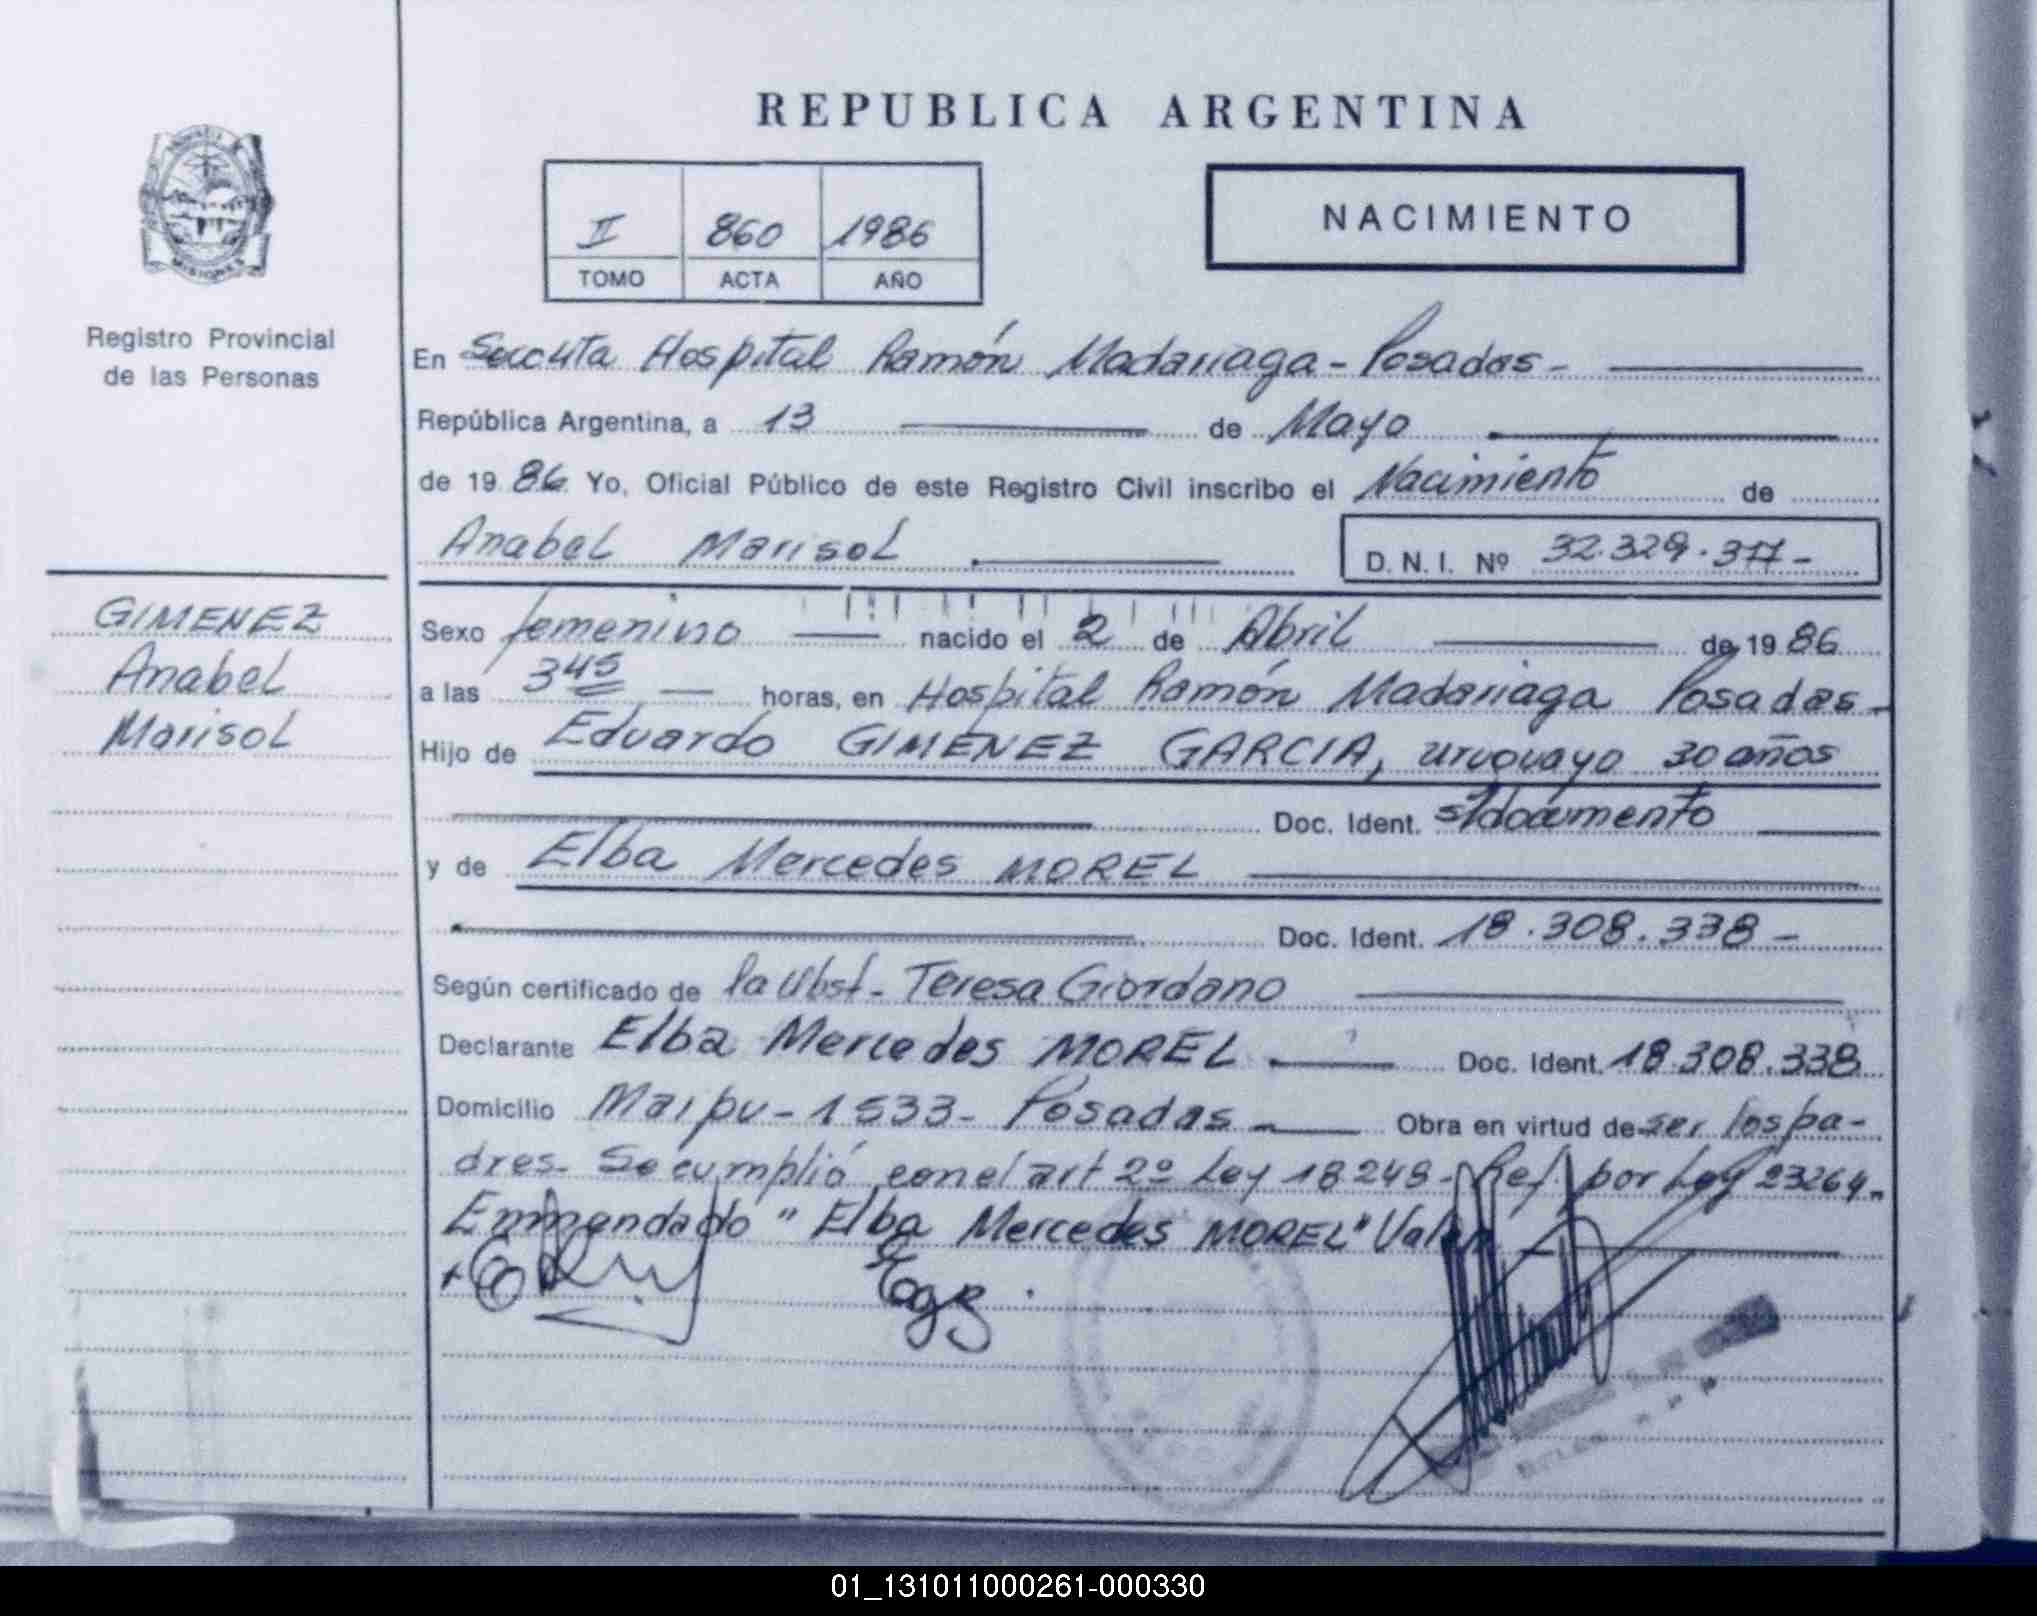 REPUBLICA ARGENTINA
II 860 1986
TOMO ACTA AÑO
NACIMIENTO
MISIONES
Registro Provincial
de las Personas
En Seccita Hospital Ramón Madariaga - Posadas -
República Argentina, a 13 de Mayo
de 19 86 Yo, Oficial Público de este Registro Civil inscribo el Nacimiento de
Anabel Marisol D. N. I. Nº 32.329.377 -
GIMENEZ
Anabel
Marisol
Sexo femenino nacido el 2 de Abril de 19 86
a las 3 45 horas, en Hospital Ramón Madariaga Posadas -
Hijo de Eduardo GIMENEZ GARCIA, uruguayo 30 años
Doc. Ident. s/documento
y de Elba Mercedes MOREL
Doc. Ident. 18.308.338 -
Según certificado de la Obst - Teresa Giordano
Declarante Elba Mercedes MOREL Doc. Ident. 18.308.338
Domicilio Maipu - 1533 - Posadas Obra en virtud de ser los pa-
dres - Se cumplió con el art 2º Ley 18248 - Ref. por Ley 23264 -
Enmendado " Elba Mercedes MOREL" Valen
01_131011000261-000330